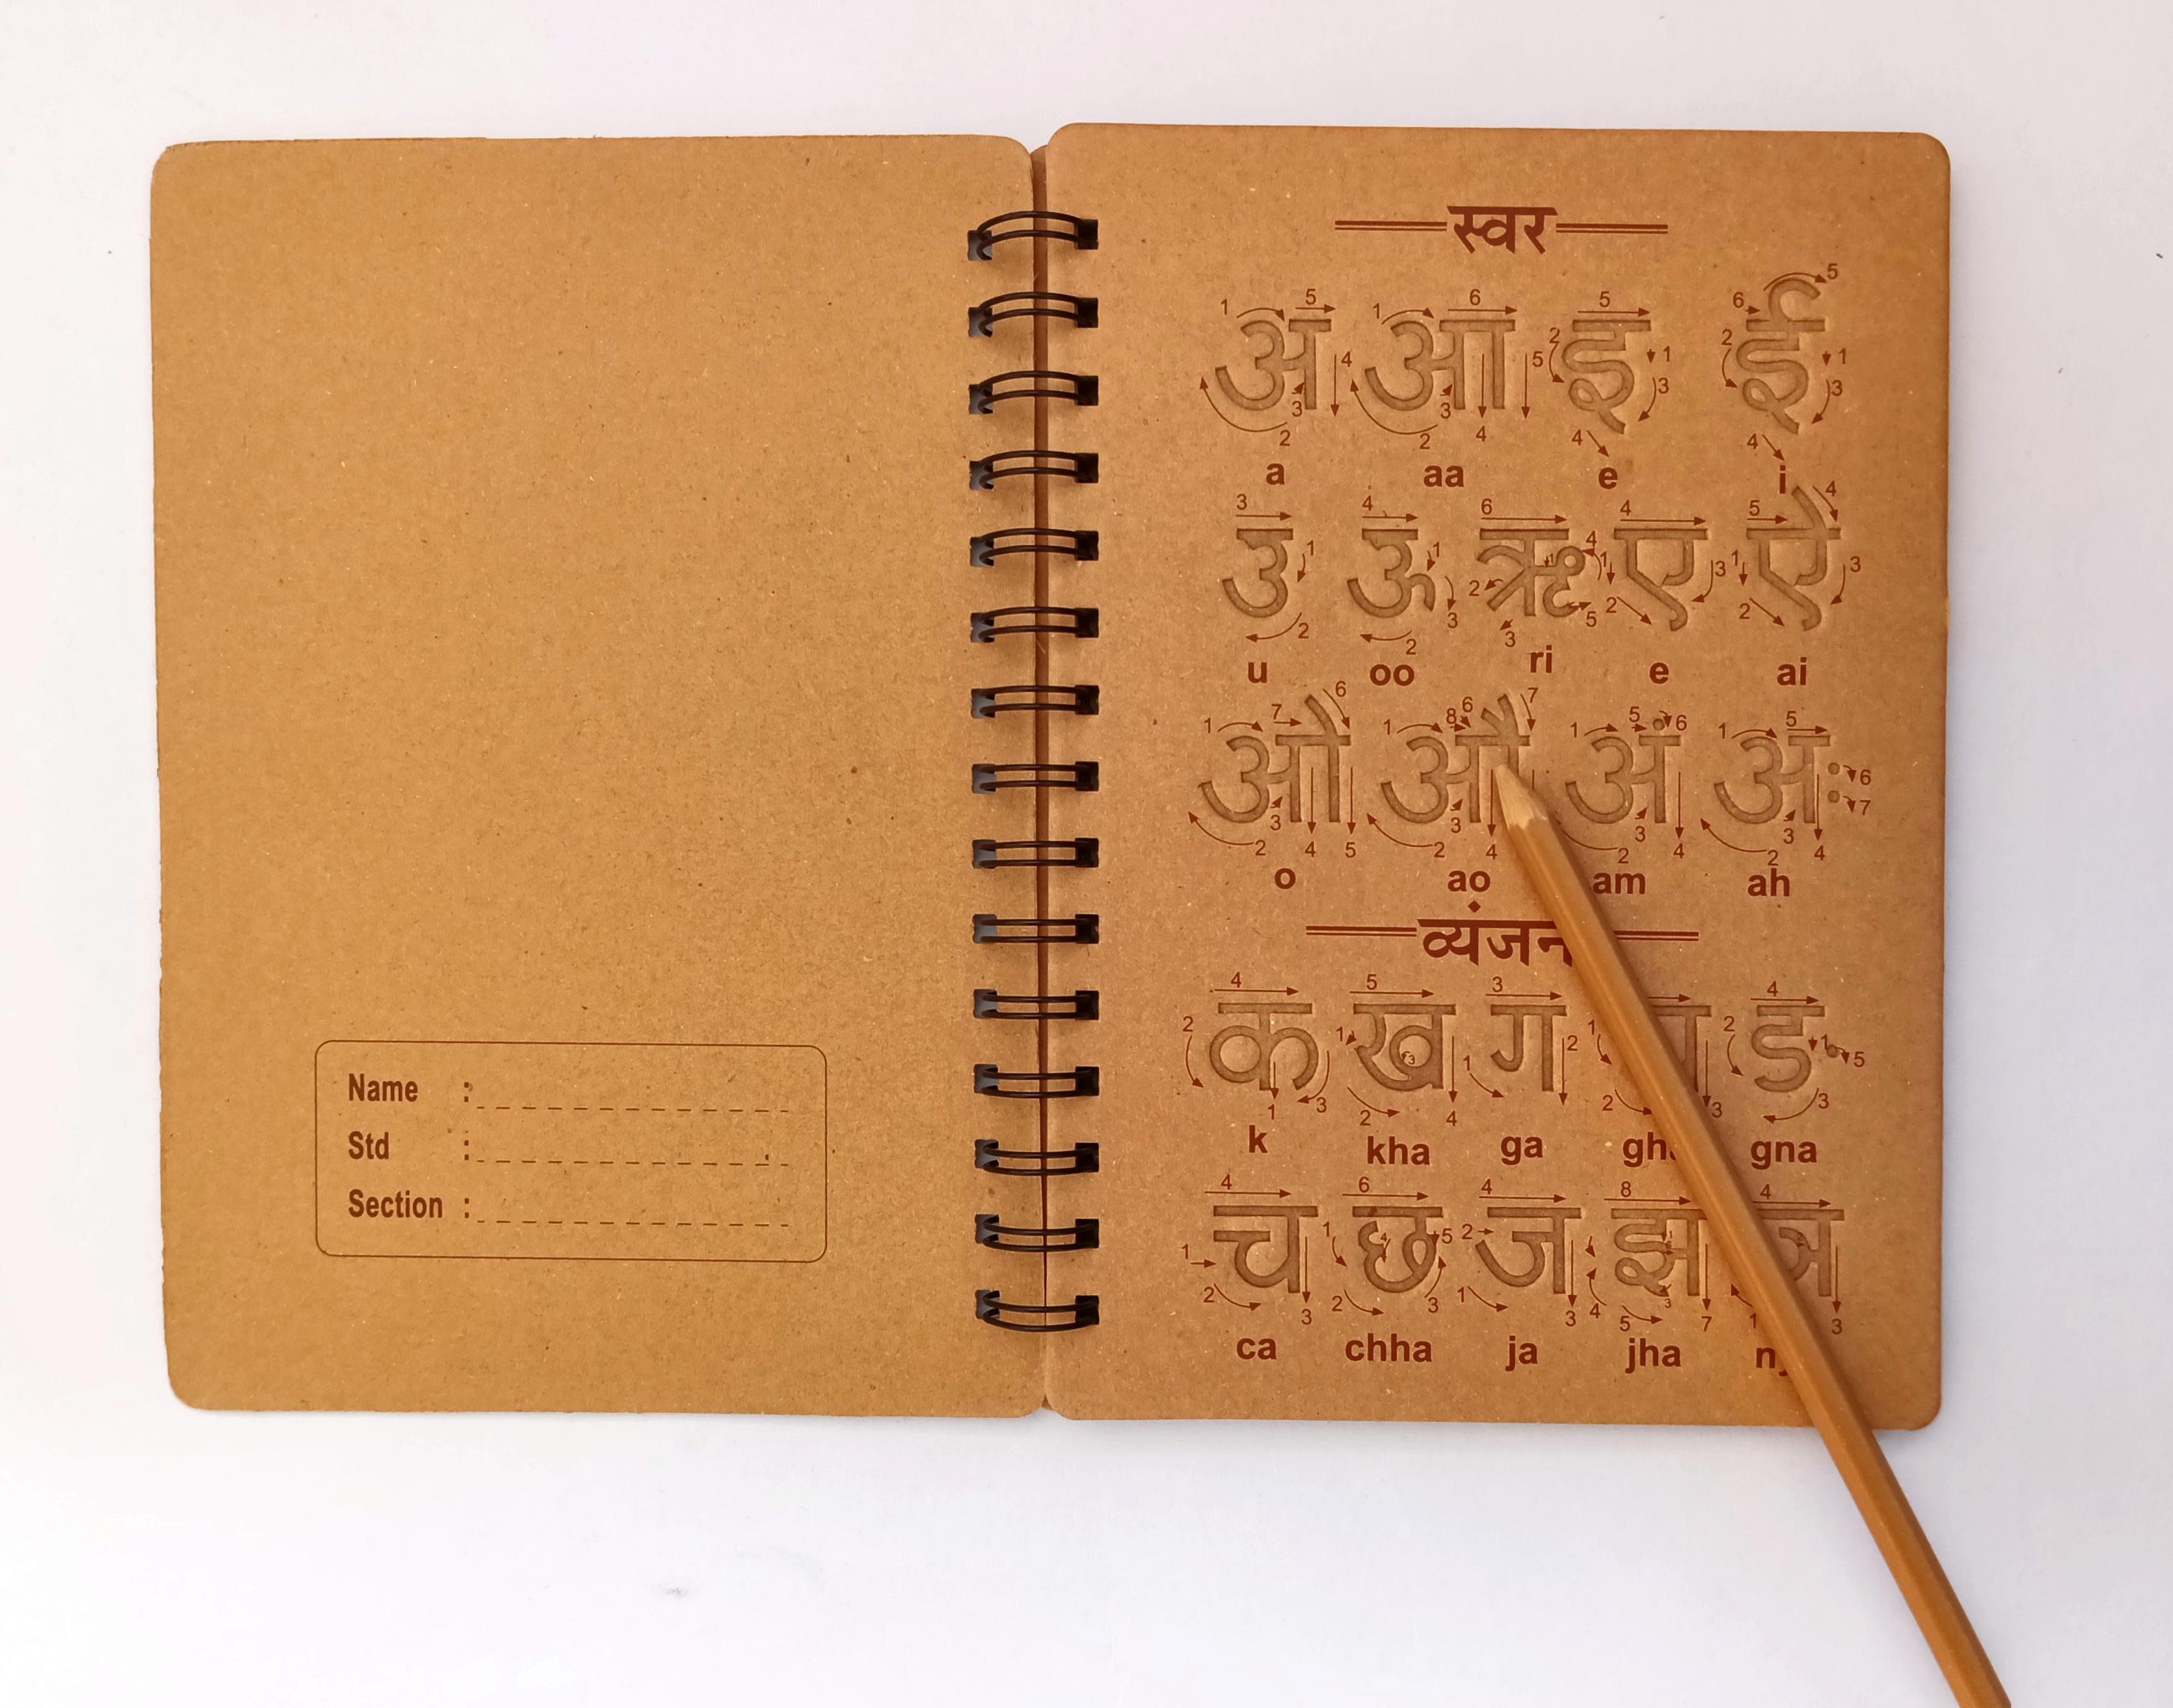 Name :
Std :
Section :
स्वर
अ आ इ ई
a aa e i
उ ऊ ऋ ए ऐ
u oo ri e ai
ओ औ अं अः
o ao am ah
व्यंजन
क ख ग ङ
k kha ga gna
च छ ज झ ञ
ca chha ja jha